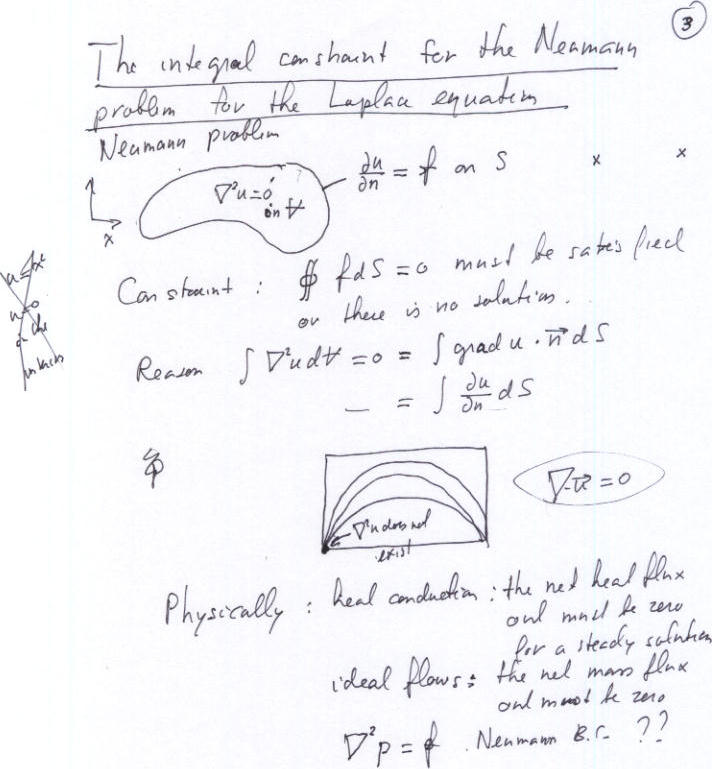 3
The integral constraint for the Neumann
problem for the Laplace equation
Neumann problem
∇²u=0
on V
∂u/∂n = f on S
x x
x
Constraint : ∯ f dS = 0 must be satisfied
or there is no solution.
Reason ∫ ∇²u dV = 0 = ∫ grad u · n⃗ dS
= ∫ ∂u/∂n dS
∇²u does not
exist
∇·v⃗ = 0
Physically : heat conduction : the net heat flux
out must be zero
for a steady solution
ideal flows : the net mass flux
out must be zero
∇²p = f . Neumann B.C. ??